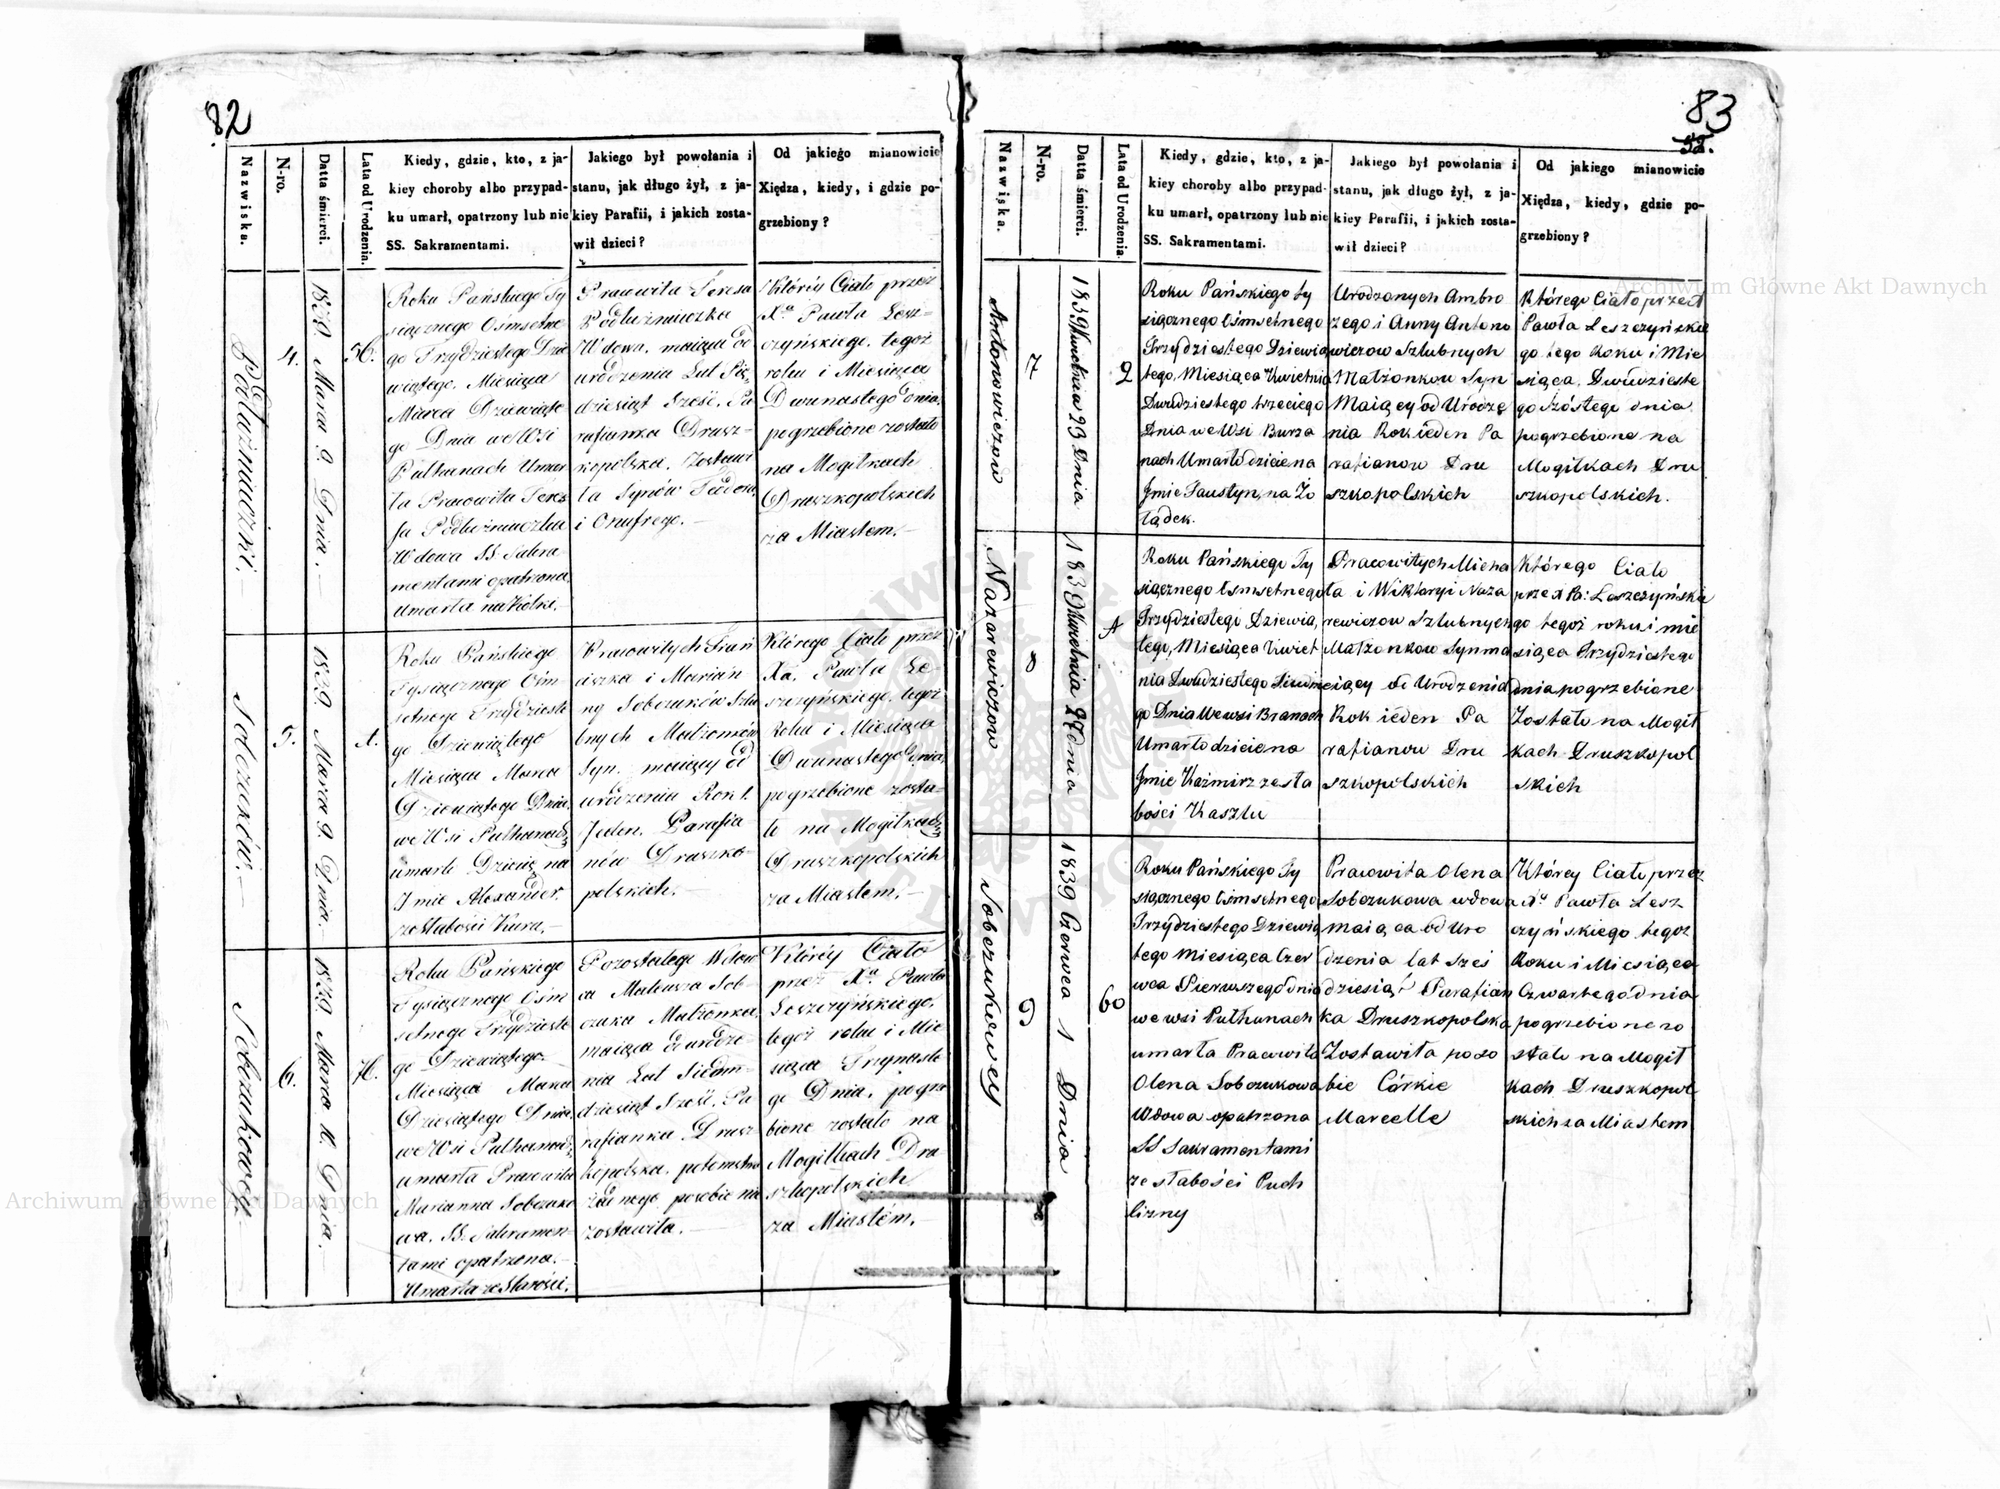 82
Nazwiska.
N-ro.
Datta śmierci.
Lata od Urodzenia.
Kiedy, gdzie, kto, z ja-
kiey choroby albo przypad-
ku umarł, opatrzony lub nie
SS. Sakramentami.
Jakiego był powołania i
stanu, jak długo żył, z ja-
kiey Parafii, i jakich zosta-
wił dzieci?
Od jakiego mianowicie
Xiędza, kiedy, i gdzie po-
grzebiony?
4.
1839 Marca 9. Dnia.
56.
Roku Pańskiego Ty
siącznego Ośmsetne
go Trzydziestego Dzie
wiątego. Miesiąca
Marca Dziewiąte
go Dnia we Wsi
Pulhanach Umar
ła Pracowita Teres
sa
Wdowa SS Sakra
mentami opatrzona,
Umarła na Kolki.
Pracowita Teresa
Wdowa, maiąca od
urodzenia Lat Pię
dziesiąt Sześć, Pa
rafianka Drusz-
kopolska. Zostawi
ła Synów Teodora
i Onufrego.
Któréy Ciało przez
Xa Pawła Lesz-
czyńskiego. tegoż
roku i Miesiąca
Dwunastego dnia,
pogrzebione zostało
na Mogiłkach
Druszkopolskich
za Miastem.
Sobczuków.
5.
1839. Marca 9. Dnia.
1.
Roku Pańskiego
Tysiącznego Ośm-
setnego Trzydzieste
go Dziewiątego
Miesiąca Marca
Dziewiątego Dnia.
we Wsi Pulhanach
umarło Dziecię na
Imie Alexander.
ze słabości Kuru,
Pracowitych Fran
ciszka i Marian
ny Sobczuków Szlu
bnych Małżonków
Syn. maiący od
urodzenia Rok 1.
Jeden. Parafia
nów Druszko-
polskich.
Którego Ciało przez
Xa. Pawła Le
szczyńskiego, tegoż
Roku i Miesiąca
Dwunastego Dnia,
pogrzebione zosta-
ło na Mogiłkach
Druszkopolskich
za Miastem.
Sobczukowey
6.
1839. Marca 10. Dnia.
76.
Roku Pańskiego
Tysiącznego Ośm
setnego Trzydzieste
go Dziewiątego
Miesiąca Marca
Dziesiątego Dnia
we Wsi Pulhanach,
umarła Pracowita
Marianna Sobczuko
wa. SS. Sakramen-
tami opatrzona.
Umarła ze Starości.
Pozostałego Wdow
ca Mateusza Sob-
czuka Małżonka,
maiąca od urodze-
nia Lat Siedm-
dziesiąt Sześć, Pa
rafianka Drusz
kopolska. potomstwa
żadnego po sobie nie
zostawiła.
Któréy Ciało
przez Xa Pawła
Leszczyńskiego,
tegoż roku i Mie
siąca Trzynaste
go Dnia, pogrze
bione zostało na
Mogiłkach Dru
szkopolskich
za Miastem.
83
52.
Nazwiska.
N-ro.
Datta śmierci.
Lata od Urodzenia.
Kiedy, gdzie, kto, z ja-
kiey choroby albo przypad-
ku umarł, opatrzony lub nie
SS. Sakramentami.
Jakiego był powołania i
stanu, jak długo żył, z ja-
kiey Parafii, i jakich zosta-
wił dzieci?
Od jakiego mianowicie
Xiędza, kiedy, gdzie po-
grzebiony?
Antonowiczow
7
1839 Kwietnia 23 Dnia
2
Roku Pańskiego Ty
siącznego Ośmsetnego
Trzydziestego Dziewią
tego, Miesiąca Kwietnia
Dwudziestego trzeciego
Dnia we Wsi Burza
nach Umarło dziecie na
Jmie Faustyn, na Żo
łądek.
Urodzonych Ambro
żego i Anny Antono
wiczow Szlubnych
Małżonkow Syn
Maiący od Urodze
nia Rok ieden Pa
rafianow Dru
szkopolskich
Którego Ciało przez X
Pawła Leszczyńskie
go tego Roku i Mie
siąca, Dwudzieste
go szóstego dnia
pogrzebione na
Mogiłkach Dru
szkopolskich.
Nazarewiczow
8
1839 Kwietnia 27 Dnia
1
Roku Pańskiego Ty
siącznego Ośmsetnego
Trzydziestego Dziewią,
tego, Miesiąca Kwiet
nia Dwudziestego Siódme
go Dnia We wsi Branach
Umarło dziecie na
Jmie Kazimirz ze sła
bości Kaszlu
Pracowitych Micha
ła i Wiktoryi Naza
rewiczow Szlubnych
Małżonkow Syn ma
iący od Urodzenia
Rok ieden Pa
rafianow Dru
szkopolskich
Którego Ciało
przez X Pa: Leszczyńskie
go tegoż roku i mie
siąca Trzydziestego
dnia pogrzebione
Zostało na Mogił
kach Druszkopol
skich
Sobczukowey
9
1839 Czerwca 1 Dnia
60
Roku Pańskiego Ty
siącznego Ośmsetnego
Trzydziestego Dziewią
tego Miesiąca Czer
wca Pierwszego dnia
we wsi Pulhanach
umarła Pracowita
Olena Sobczukowa
Wdowa opatrzona
SS Sakramentami
ze słabości Puch
lizny
Pracowita Olena
Sobczukowa wdowa
maiąca od Uro
dzenia lat szes
dziesiąt Parafian
ka Druszkopolska
Zostawiła po so
bie Córkie
Marcelle
Którey Ciało przez
Xa Pawła Lesz
czyńskiego tegoż
Roku i Miesiąca
Czwartego dnia
pogrzebione zo
stało na Mogił
kach Druszkopol
skich za Miastem
Archiwum Główne Akt Dawnych
Archiwum Główne Akt Dawnych